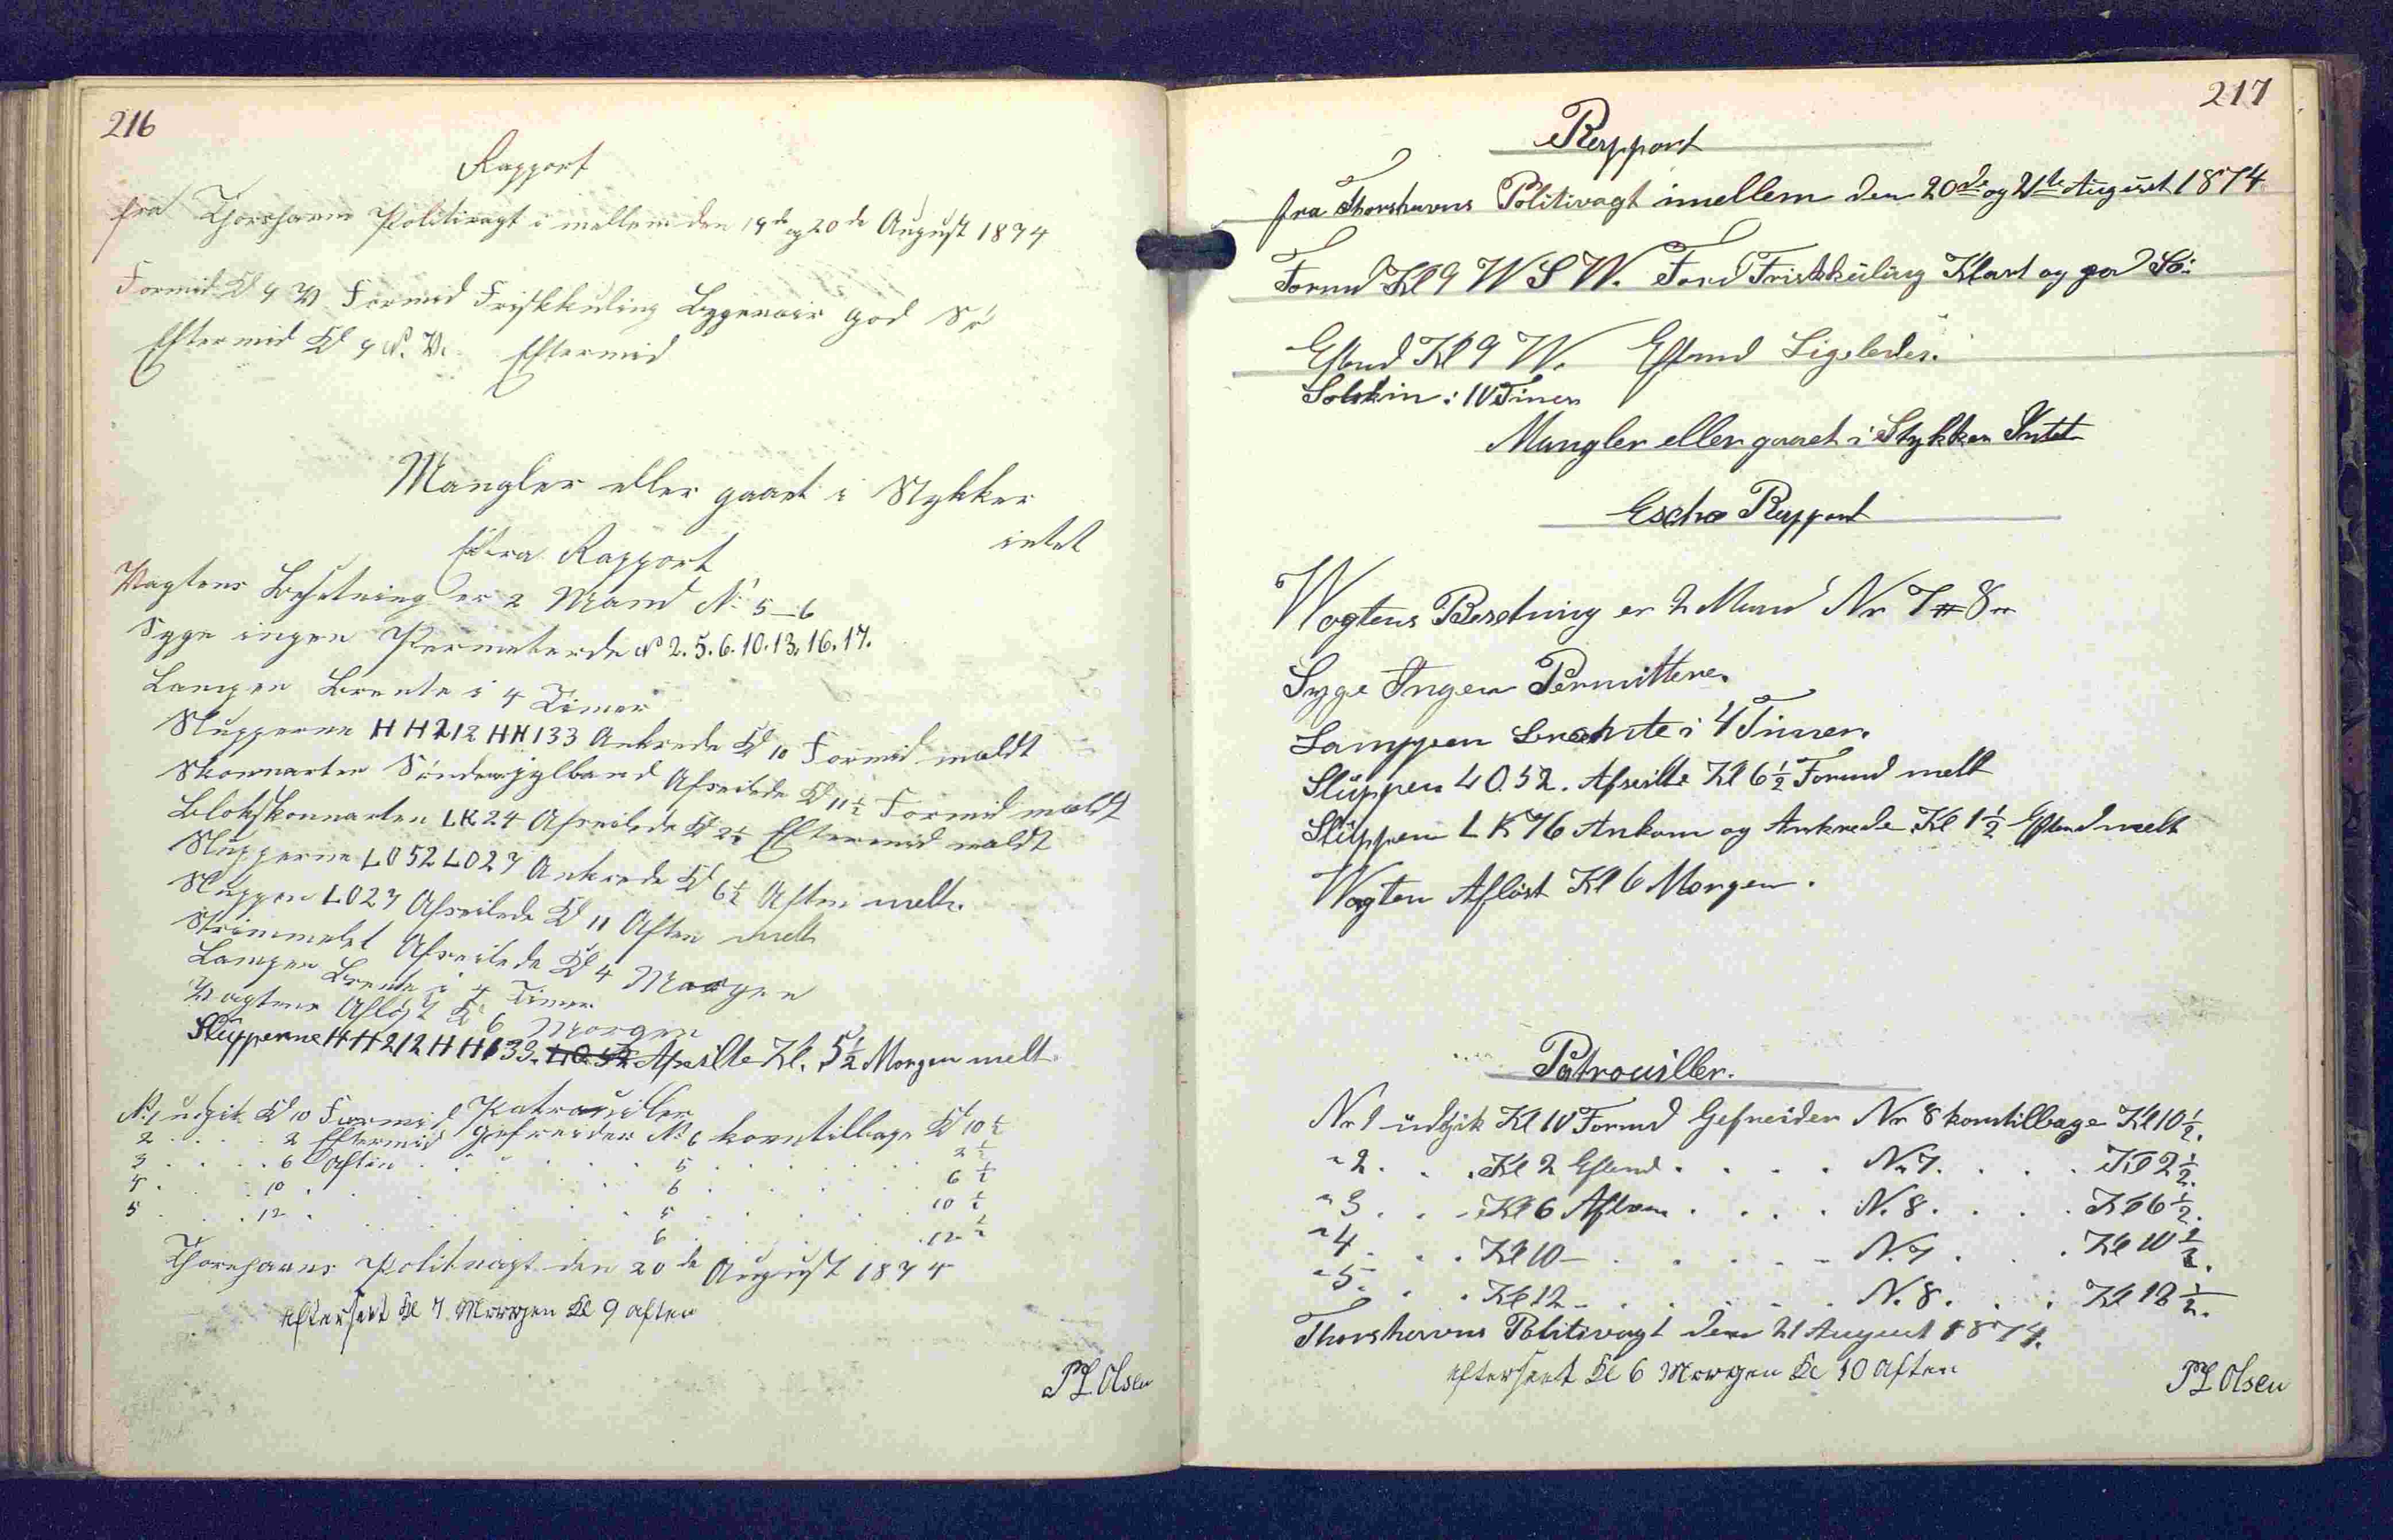 216
Rapport
fra Thorshavns Politivagt i mellem den 19de og 20de August 1874
Formid Kl 9 V Formid Friskkuling Bygeveir god Sö
Eftermid Kl 9 N. V. Eftermid
Mangler eller gaaet i Stykker
intet
Extra Rapport
Vagtens Besetning er 2 Mand No 5-6
Syge ingen Permeterede No 2. 5. 6. 10. 13. 16. 17.
Lampen Brente i 4 Timer
Slupperne HH212 HH133 Ankrede Kl 10 Formid meldt
Skonnarten Sönderjylland Afseilede Kl 11½ Formid meldt
Blokskonnarten LK24 Afseilede Kl 2½ Eftermid meldt
Slupperne LO52 LO27 Ankrede Kl 6½ Aften melt.
Sluppen LO27 Afseilede Kl 11 Aften melt
Afseilede Kl 4 Morgen
Lampen Brente i 4 Timer
Vagten Aflöst Kl 6 Morgen
Slupperne HH212 HH133. LO 52 Afseilte Kl. 5½ Morgen melt
Patrouiller
No 1 udgik Kl 10 Formid Gefreider No 6 kom tilbage Kl 10½
2 . . . . 2 Eftermid . . . . 5 . . . . 2½
3 . . . . 6 Aften . . . . 6 . . . . 6½
4 . . . . 10 . . . . 5 . . . . 10½
5 . . . . 12 . . . . 6 . . . . 12½
Thorshavns Politivagt den 20de August 1874
efterseet Kl 7 Morgen Kl 9 aften
PL Olsen
217
Rapport
fra Thorshavns Politivagt imellem den 20de og 21de August 1874
Formd Kl 9 W S W. Ford Friskkuling Klart og god Sö:
Eftmd Kl 9 W. Eftmd Ligeledes.
Solskin: 10 Timer
Mangler eller gaaet i Stykker Intet
Escha Rapport
Wagtens Besetning er 2 Mand Nr 7 # 8
Syge Ingen Permittere.
Lamppen brente i 4 Timer.
Sluppen LO. 52. Afseilte Kl 6½ Formd melt
Sluppen L K 76 Ankom og Ankrede Kl 1½ Eftmd melt
Wagten Aflöst Kl 6 Morgen.
Patrouiller.
Nr 1 üdgik Kl 10 Formd Gefreider Nr 8 kom tilbage Kl 10½.
" 2. . . Kl 2 Eftmd . . . . Nr 7. . . . Kl 2½.
" 3. . . Kl 6 Aften . . . . N. 8. . . . Kl 6½.
" 4. . . Kl 10 – . . . . N. 7. . . . Kl 10½.
" 5. . . Kl 12 – . . . . N. 8. . . . Kl 12½.
Thorshavns Politivagt den 21 August 1874.
efterseet Kl 6 Morgen Kl 10 aften
PL Olsen